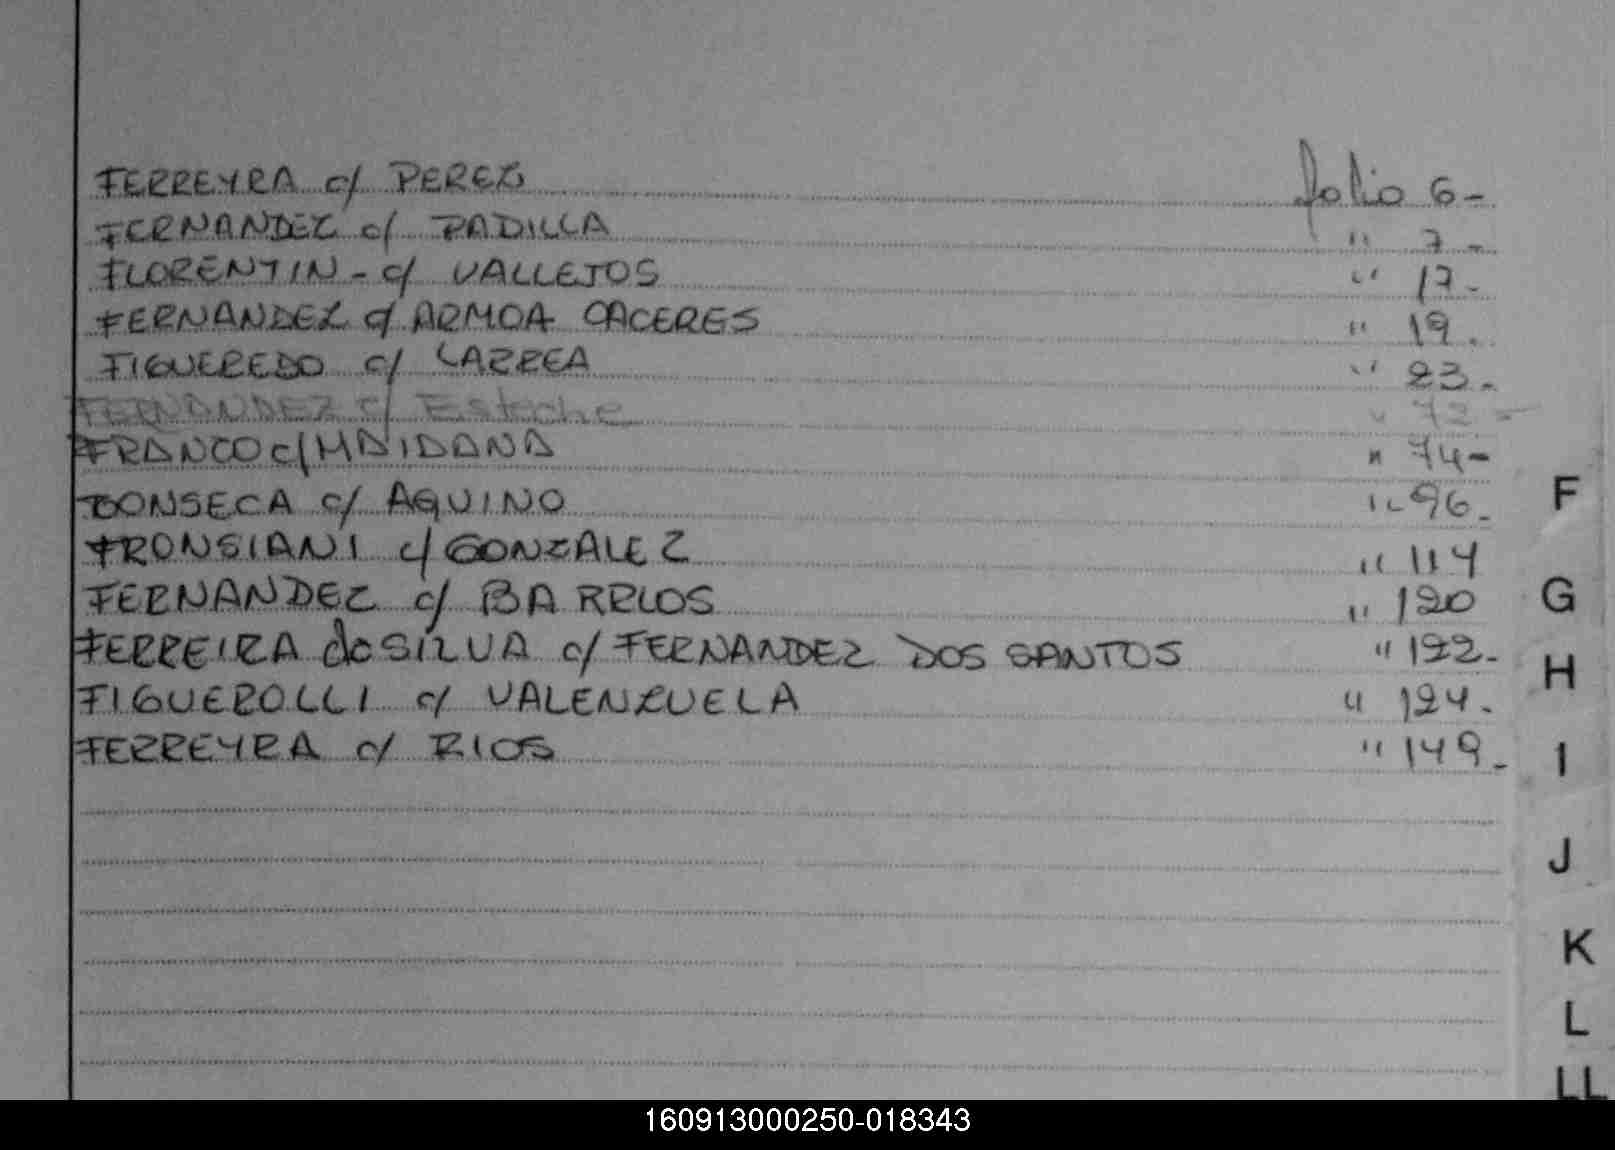 FERREYRA c/ PEREZ folio 6-
FERNANDEZ c/ PADILLA " 7-
FLORENTIN - c/ VALLEJOS " 17-
FERNANDEZ c/ ARMOA CACERES " 19.
FIGUEREDO c/ LARREA " 23-
FERNANDEZ c/ Esteche " 72-
FRANCO c/ MAIDANA " 74-
FONSECA c/ AQUINO " 96-
FRONSIANI c/ GONZALEZ " 114
FERNANDEZ c/ BARRIOS " 120
FERREIRA da SILVA c/ FERNANDEZ DOS SANTOS " 122-
FIGUEROLLI c/ VALENZUELA " 124.
FERREYRA c/ RIOS " 149-
F
G
H
I
J
K
L
LL
160913000250-018343